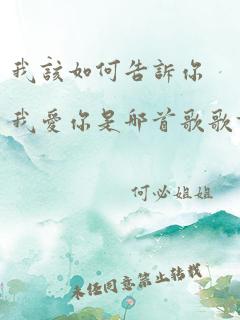 我該如何告訴你
我愛你是那首歌歌
何必姐姐
未经同意禁止转载